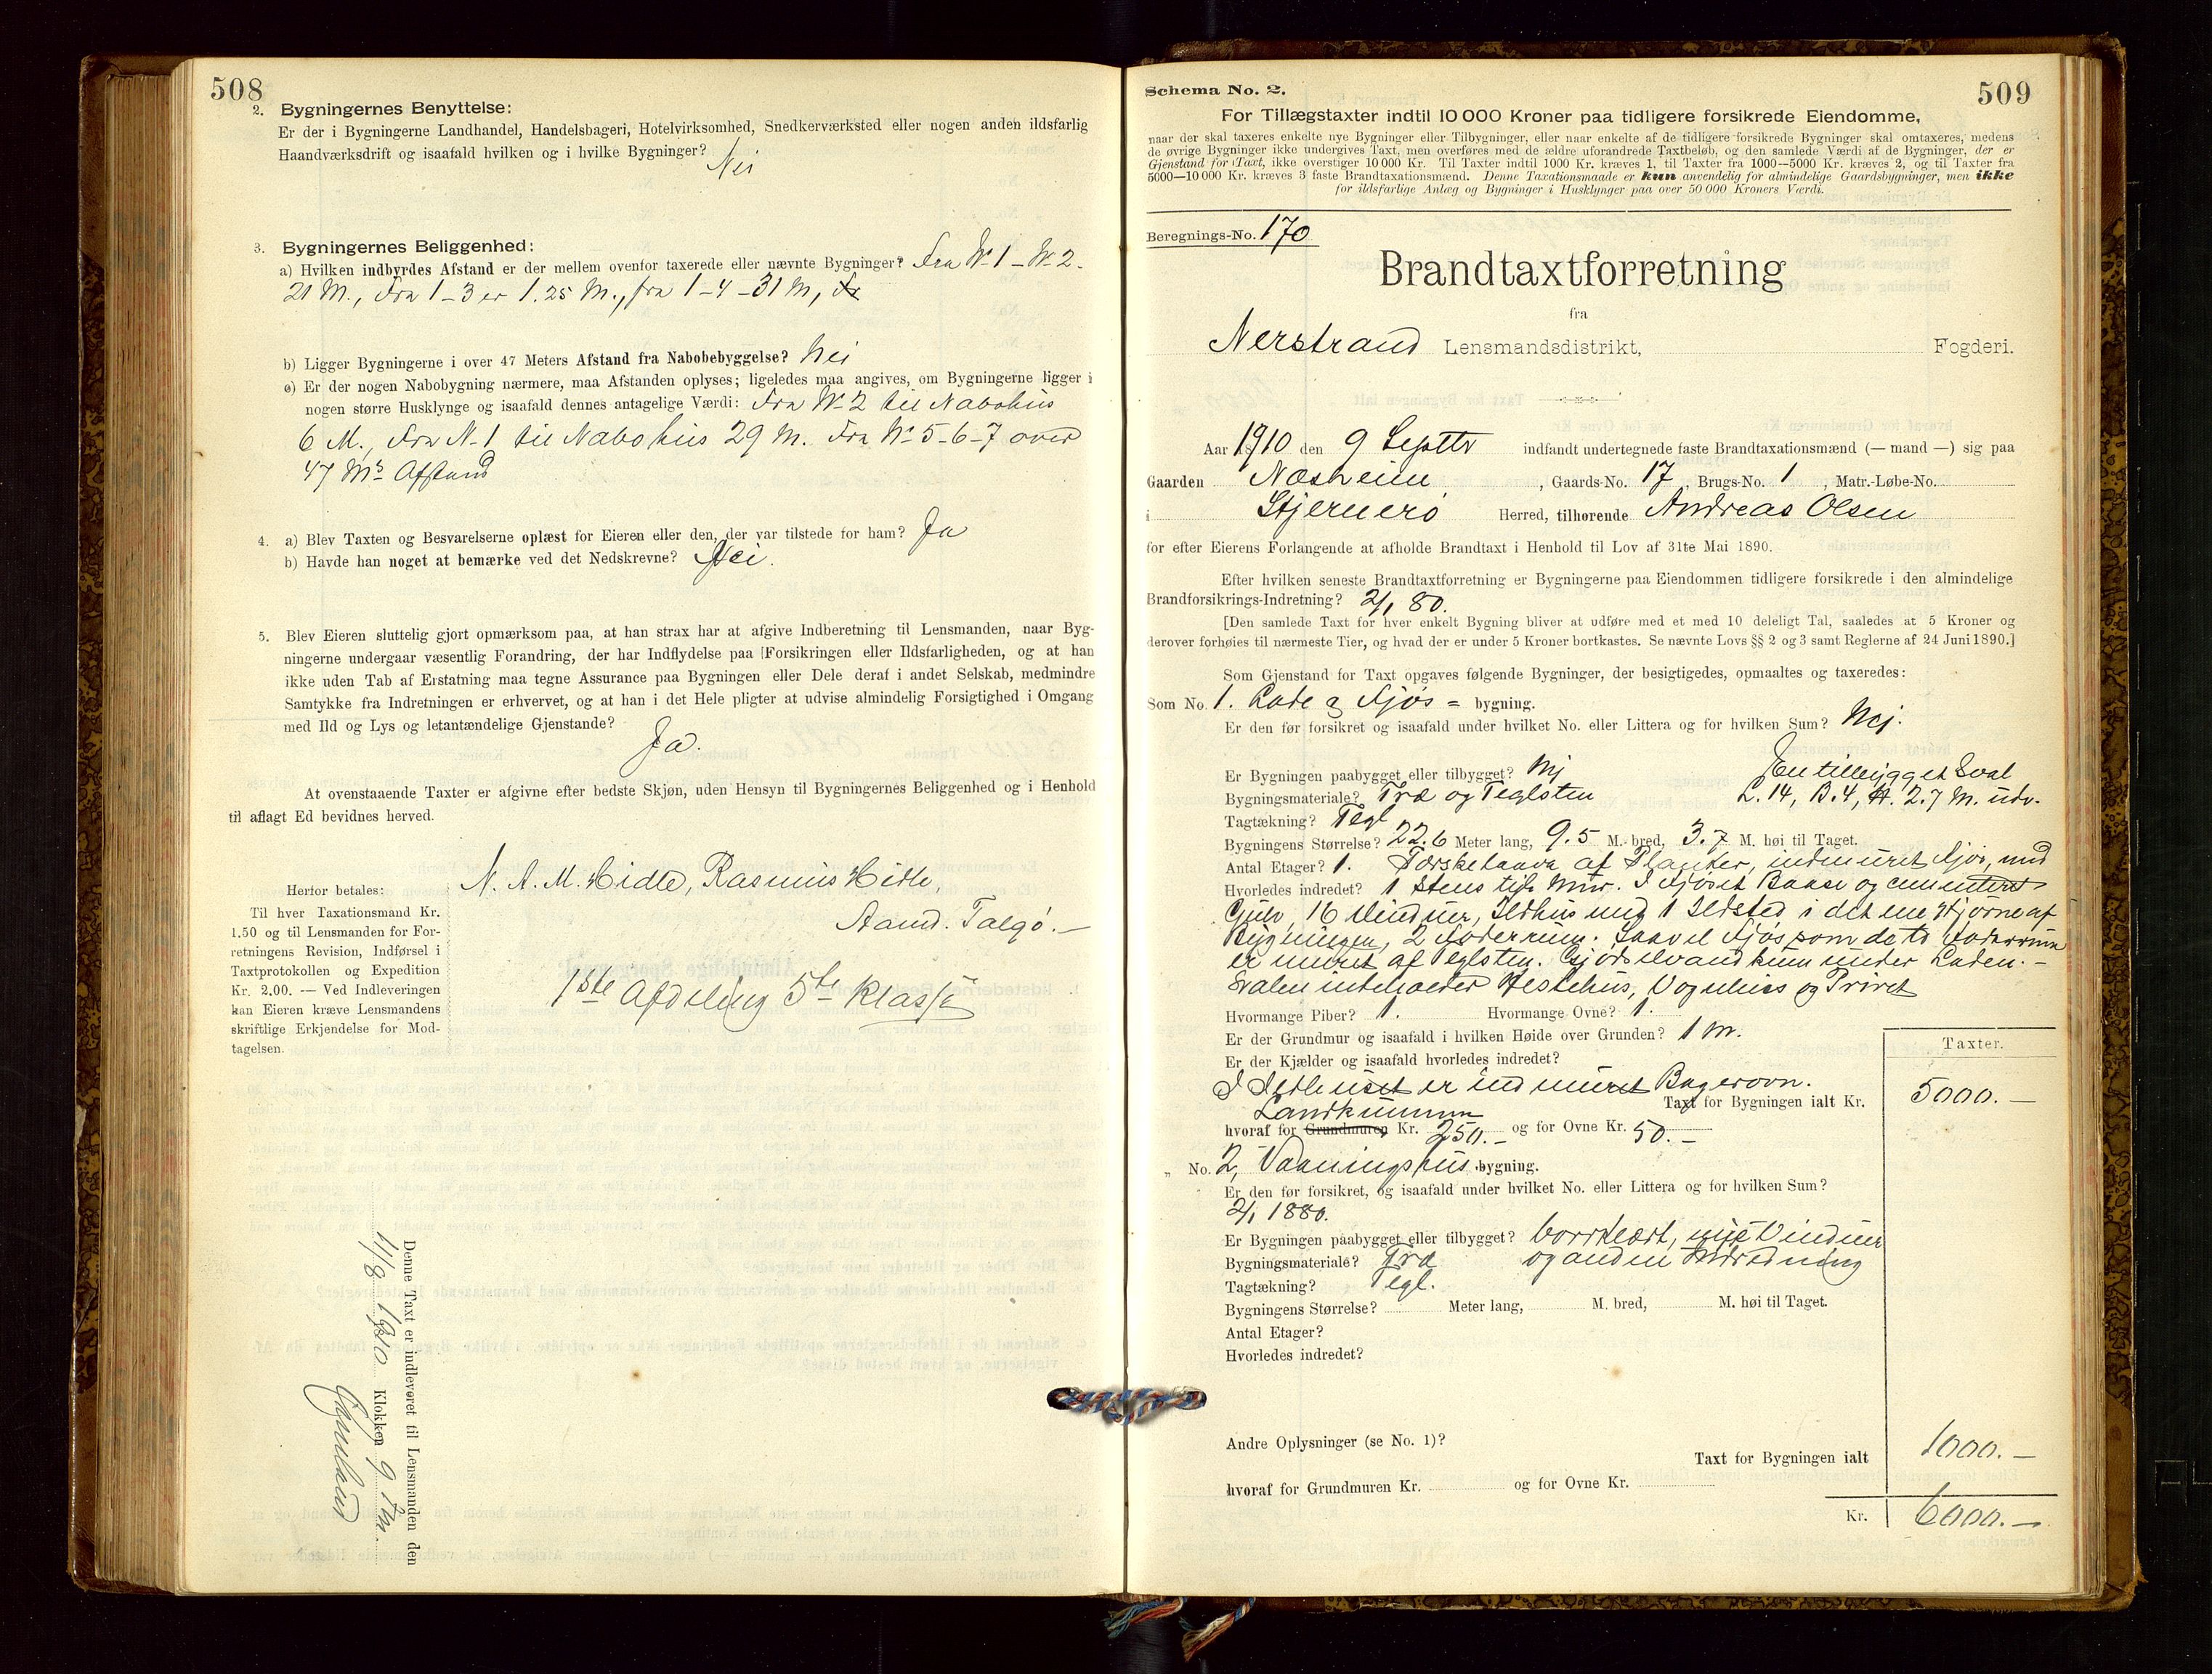 508
2. Bygningernes Benyttelse:
Er der i Bygningerne Landhandel, Handelsbageri, Hotelvirksomhed, Snedkerværksted eller nogen anden ildsfarlig
Haandværksdrift og isaafald hvilken og i hvilke Bygninger?
Nei
3. Bygningernes Beliggenhed:
a) Hvilken indbyrdes Afstand er der mellem ovenfor taxerede eller nævnte Bygninger? Fra No 1 - No 2 -
21 M., Fra 1-3 er 1.25 M., fra 1-4 - 31 M,
b) Ligger Bygningerne i over 47 Meters Afstand fra Nabobebyggelse? Nei
c) Er der nogen Nabobygning nærmere, maa Afstanden oplyses; ligeledes maa angives, om Bygningerne ligger i
nogen større Husklynge og isaafald dennes antagelige Værdi: Fra No 2 til Nabohus
6 M., Fra N-1 til Nabohus 29 M. Fra No 5-6-7 over
47 Ms Afstand
4. a) Blev Taxten og Besvarelserne oplæst for Eieren eller den, der var tilstede for ham? Ja
b) Havde han noget at bemærke ved det Nedskrevne? Nei.
5. Blev Eieren sluttelig gjort opmærksom paa, at han strax har at afgive Indberetning til Lensmanden, naar Byg-
ningerne undergaar væsentlig Forandring, der har Indflydelse paa Forsikringen eller Ildsfarligheden, og at han
ikke uden Tab af Erstatning maa tegne Assurance paa Bygningen eller Dele deraf i andet Selskab, medmindre
Samtykke fra Indretningen er erhvervet, og at han i det Hele pligter at udvise almindelig Forsigtighed i Omgang
med Ild og Lys og letantændelige Gjenstande?
Ja.
At ovenstaaende Taxter er afgivne efter bedste Skjøn, uden Hensyn til Bygningernes Beliggenhed og i Henhold
til aflagt Ed bevidnes herved.
N. A. M. Hidle, Rasmus Hidle,
Aamd. Talgø. -
1ste Afdeling 5te Klasse
Herfor betales:
Til hver Taxationsmand Kr.
1.50 og til Lensmanden for For-
retningens Revision, Indførsel i
Taxtprotokollen og Expedition
Kr. 2.00. — Ved Indleveringen
kan Eieren kræve Lensmandens
skriftlige Erkjendelse for Mod-
tagelsen.
Denne Taxt er indleveret til Lensmanden den
11/8 1910 Klokken 9 Fm.
509
Schema No. 2.
For Tillægstaxter indtil 10 000 Kroner paa tidligere forsikrede Eiendomme,
naar der skal taxeres enkelte nye Bygninger eller Tilbygninger, eller naar enkelte af de tidligere forsikrede Bygninger skal omtaxeres, medens
de øvrige Bygninger ikke undergives Taxt, men overføres med de ældre uforandrede Taxtbeløb, og den samlede Værdi af de Bygninger, der er
Gjenstand for Taxt, ikke overstiger 10 000 Kr. Til Taxter indtil 1000 Kr. kræves 1, til Taxter fra 1000—5000 Kr. kræves 2, og til Taxter fra
5000—10 000 Kr. kræves 3 faste Brandtaxationsmænd. Denne Taxationsmaade er kun anvendelig for almindelige Gaardsbygninger, men ikke
for ildsfarlige Anlæg og Bygninger i Husklynger paa over 50 000 Kroners Værdi.
Beregnings-No. 170
Brandtaxtforretning
fra
Nerstrand Lensmandsdistrikt, Fogderi.
Aar 1910 den 9 Septbr indfandt undertegnede faste Brandtaxationsmænd (— mand —) sig paa
Gaarden Næsheim, Gaards-No. 17, Brugs-No. 1, Matr.-Løbe-No.
i Stjernerø Herred, tilhørende Andreas Olsen
for efter Eierens Forlangende at afholde Brandtaxt i Henhold til Lov af 31te Mai 1890.
Efter hvilken seneste Brandtaxtforretning er Bygningerne paa Eiendommen tidligere forsikrede i den almindelige
Brandforsikrings-Indretning? 2/1 80.
[Den samlede Taxt for hver enkelt Bygning bliver at udføre med et med 10 deleligt Tal, saaledes at 5 Kroner og
derover forhøies til nærmeste Tier, og hvad der er under 5 Kroner bortkastes. Se nævnte Lovs §§ 2 og 3 samt Reglerne af 24 Juni 1890.]
Som Gjenstand for Taxt opgaves følgende Bygninger, der besigtigedes, opmaaltes og taxeredes:
Som No. 1. Lade og Fjøs = bygning.
Er den før forsikret og isaafald under hvilket No. eller Littera og for hvilken Sum? Nej.
Er Bygningen paabygget eller tilbygget? Nij En tilbygget Sval
Bygningsmateriale? Træ og Teglsten L. 14, B. 4, H. 2.7 M. udv.
Tagtækning? Tegl
Bygningens Størrelse? 22.6 Meter lang, 9.5 M. bred, 3.7 M. høi til Taget.
Antal Etager? 1. Tærskelaave af Planker, indmuret Fjøs, med
Hvorledes indret? 1 Stens tyk Mur. I Fjøset Baase og cementeret
Gulv, 16 Vinduer, Ildhus med 1 Ildsted i det ene Hjørne af
Bygningen, 2 Foderrum. Saavel Fjøs som de to Foderrum
er muret af Teglsten. Gjødselvandkum under Laden. -
Svalen indeholder Hestehus, Vognhus og Privet
Hvormange Piber? 1. Hvormange Ovne? 1.
Er der Grundmur og isaafald i hvilken Høide over Grunden? 1 M.
Er der Kjælder og isaafald hvorledes indredet?
I Ildhuset er indmuret Bagerovn.
Taxter.
Taxt for Bygningen ialt Kr. 5000. —
Landkummen
hvoraf for Grundmuren Kr. 250. - og for Ovne Kr. 50. -
„ No. 2, Vaaningshus bygning.
Er den før forsikret, og isaafald under hvilket No. eller Littera og for hvilken Sum?
2/1 1880.
Er Bygningen paabygget eller tilbygget? bordklædt, nye Vinduer
Bygningsmateriale? Træ og anden Indredning
Tagtækning? Tegl.
Bygningens Størrelse? Meter lang, M. bred, M. høi til Taget.
Antal Etager?
Hvorledes indredet?
Andre Oplysninger (se No. 1)?
Taxt for Bygningen ialt 1000. —
hvoraf for Grundmuren Kr. og for Ovne Kr.
Kr. 6000. —